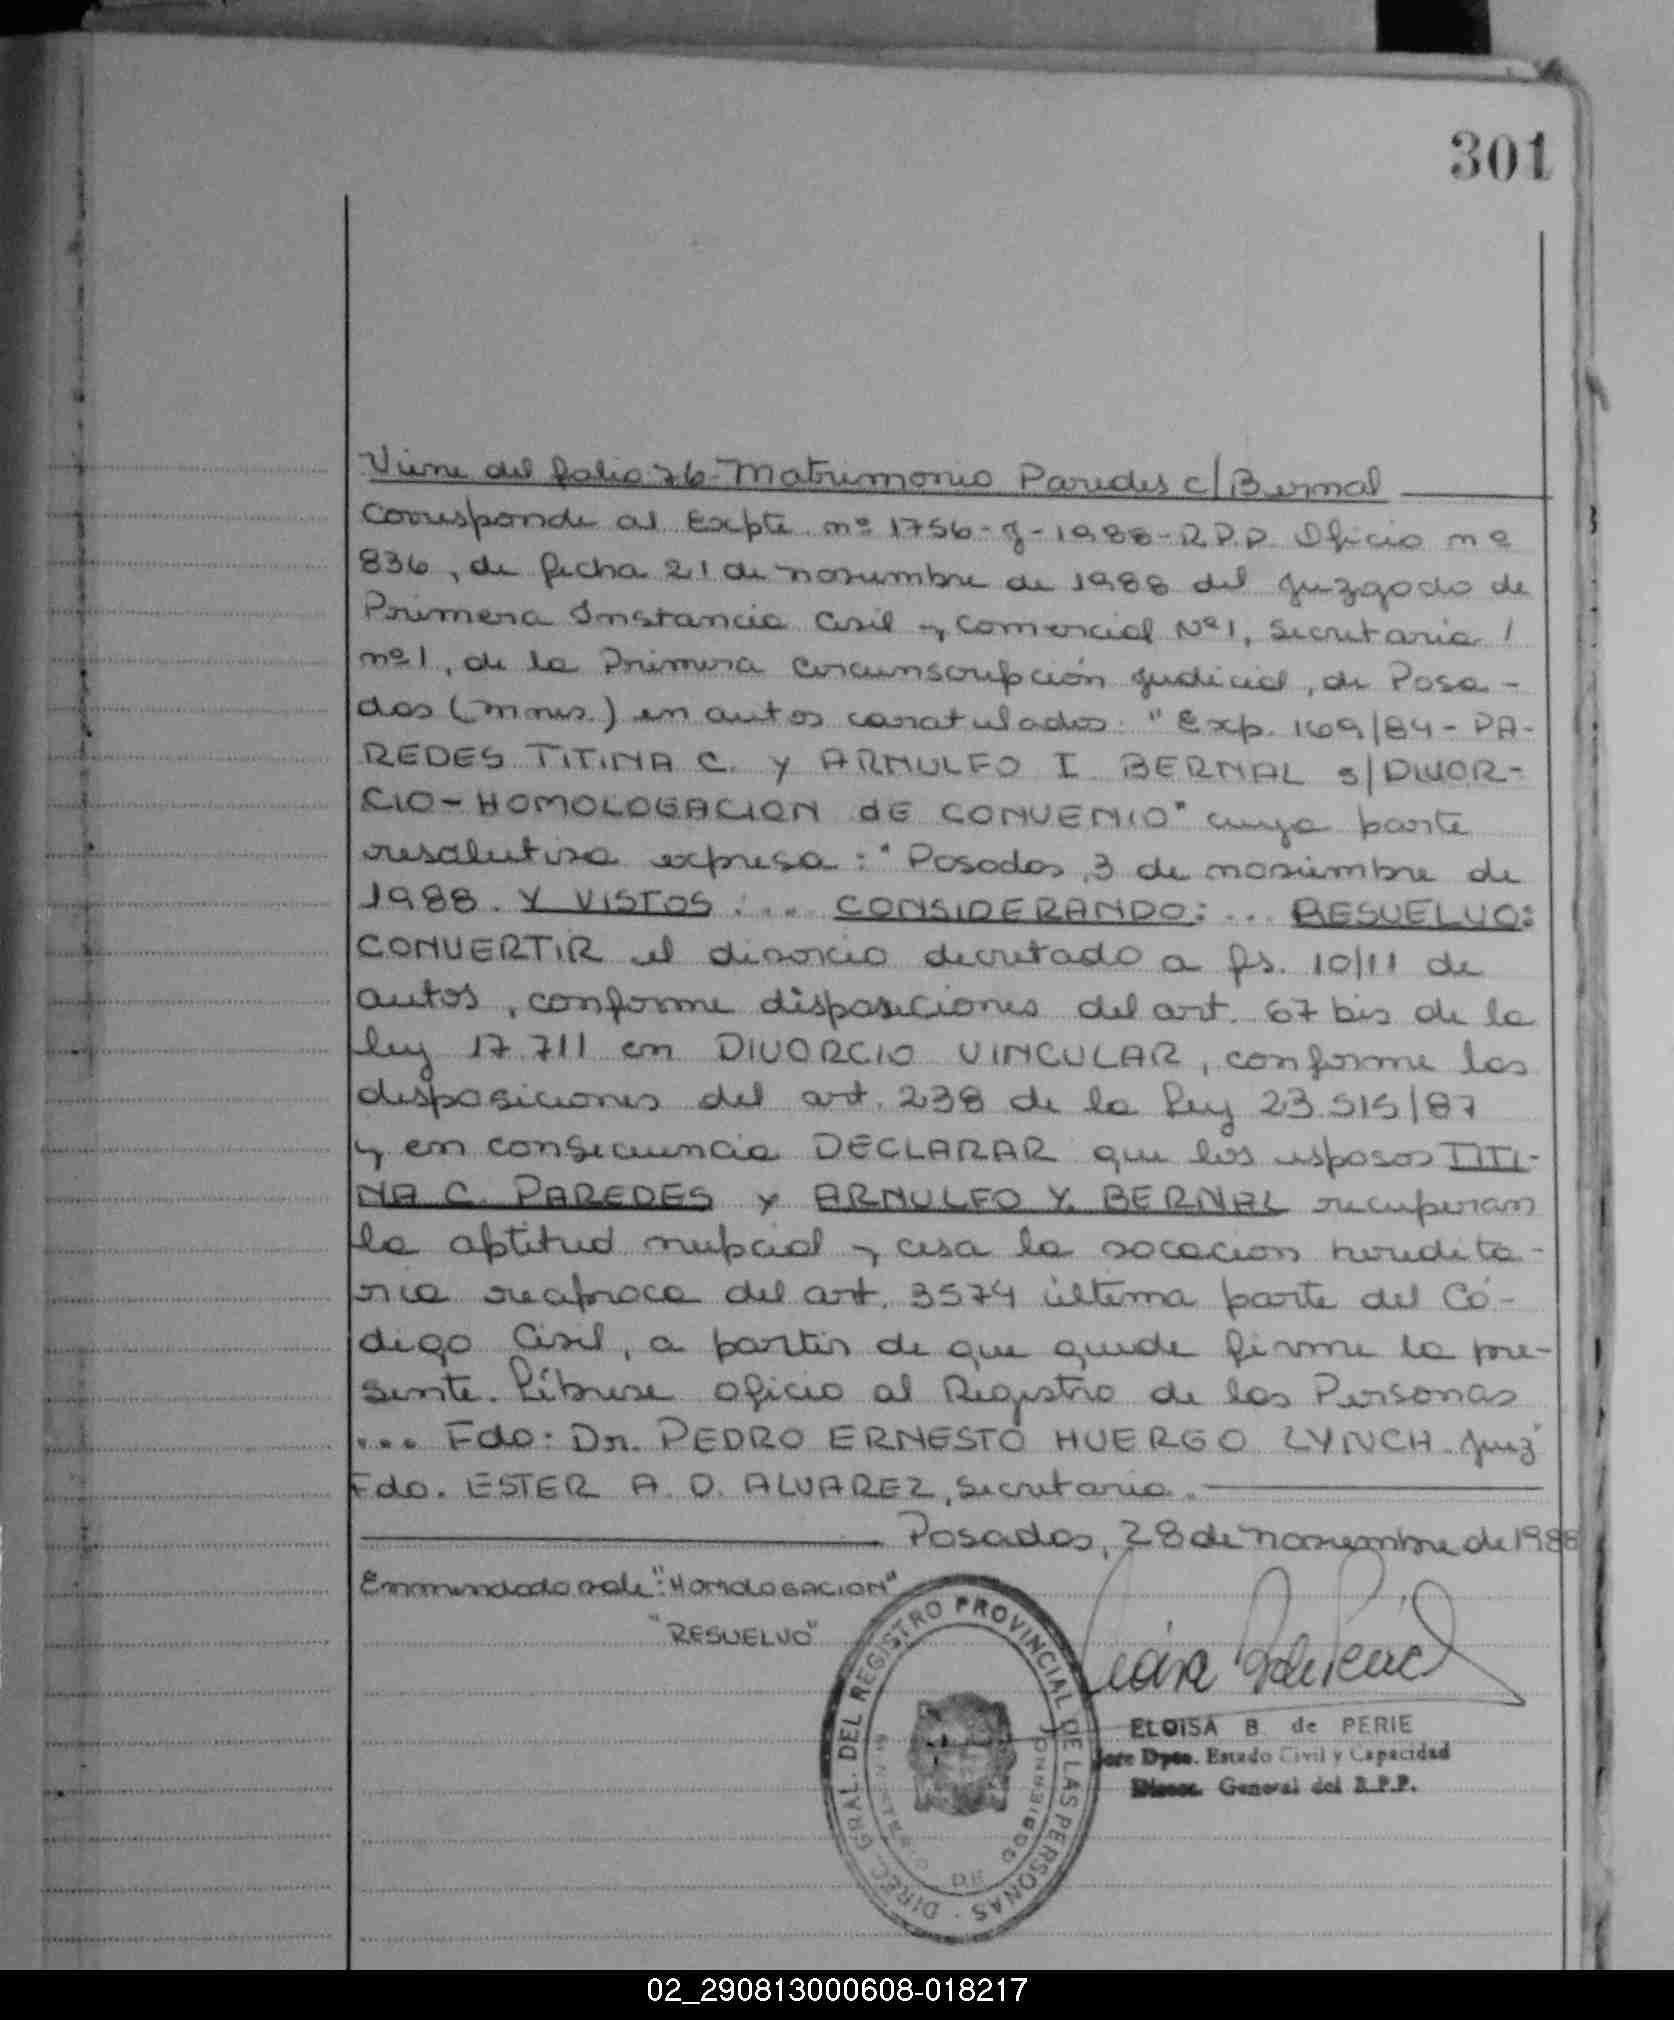 301
Viene del folio 76- Matrimonio Paredes c/Bernal
Corresponde al Expte. nº 1756-J-1988-R.P.P. Oficio nº
836, de fecha 21 de noviembre de 1988 del Juzgado de
Primera Instancia Civil y Comercial Nº1, Secretaria /
nº1, de la Primera Circunscripción Judicial, de Posa-
das (Mnes.) en autos caratulados: "Exp. 169/84- PA-
REDES TITINA C. Y ARNULFO I. BERNAL s/DIVOR-
CIO-HOMOLOGACION dE CONVENIO" cuya parte
resolutiva expresa: "Posadas, 3 de noviembre de
1988. Y VISTOS:... CONSIDERANDO:... RESUELVO:
CONVERTIR el divorcio decretado a fs. 10/11 de
autos, conforme disposiciones del art. 67 bis de la
ley 17.711 en DIVORCIO VINCULAR, conforme las
disposiciones del art. 238 de la Ley 23.515/87
y en consecuencia DECLARAR que los esposos TITI-
NA C. PAREDES y ARNULFO Y. BERNAL recuperan
la aptitud nupcial y cesa la vocación heredita-
ria recíproca del art. 3574 última parte del Có-
digo Civil, a partir de que quede firme la pre-
sente. Líbrese oficio al Registro de las Personas
... Fdo: Dr. PEDRO ERNESTO HUERGO LYNCH. Juez
Fdo. ESTER A. D. ALVAREZ, Secretaria.
Posadas, 28 de noviembre de 1988
Enmendado vale: "HOMOLOGACION"
"RESUELVO"
DIREC. GRAL. DEL REGISTRO PROVINCIAL DE LAS PERSONAS
MINISTERIO DE GOBIERNO
ELOISA B. de PERIE
Jefe Dpto. Estado Civil y Capacidad
Direcc. General del R.P.P.
02_290813000608-018217